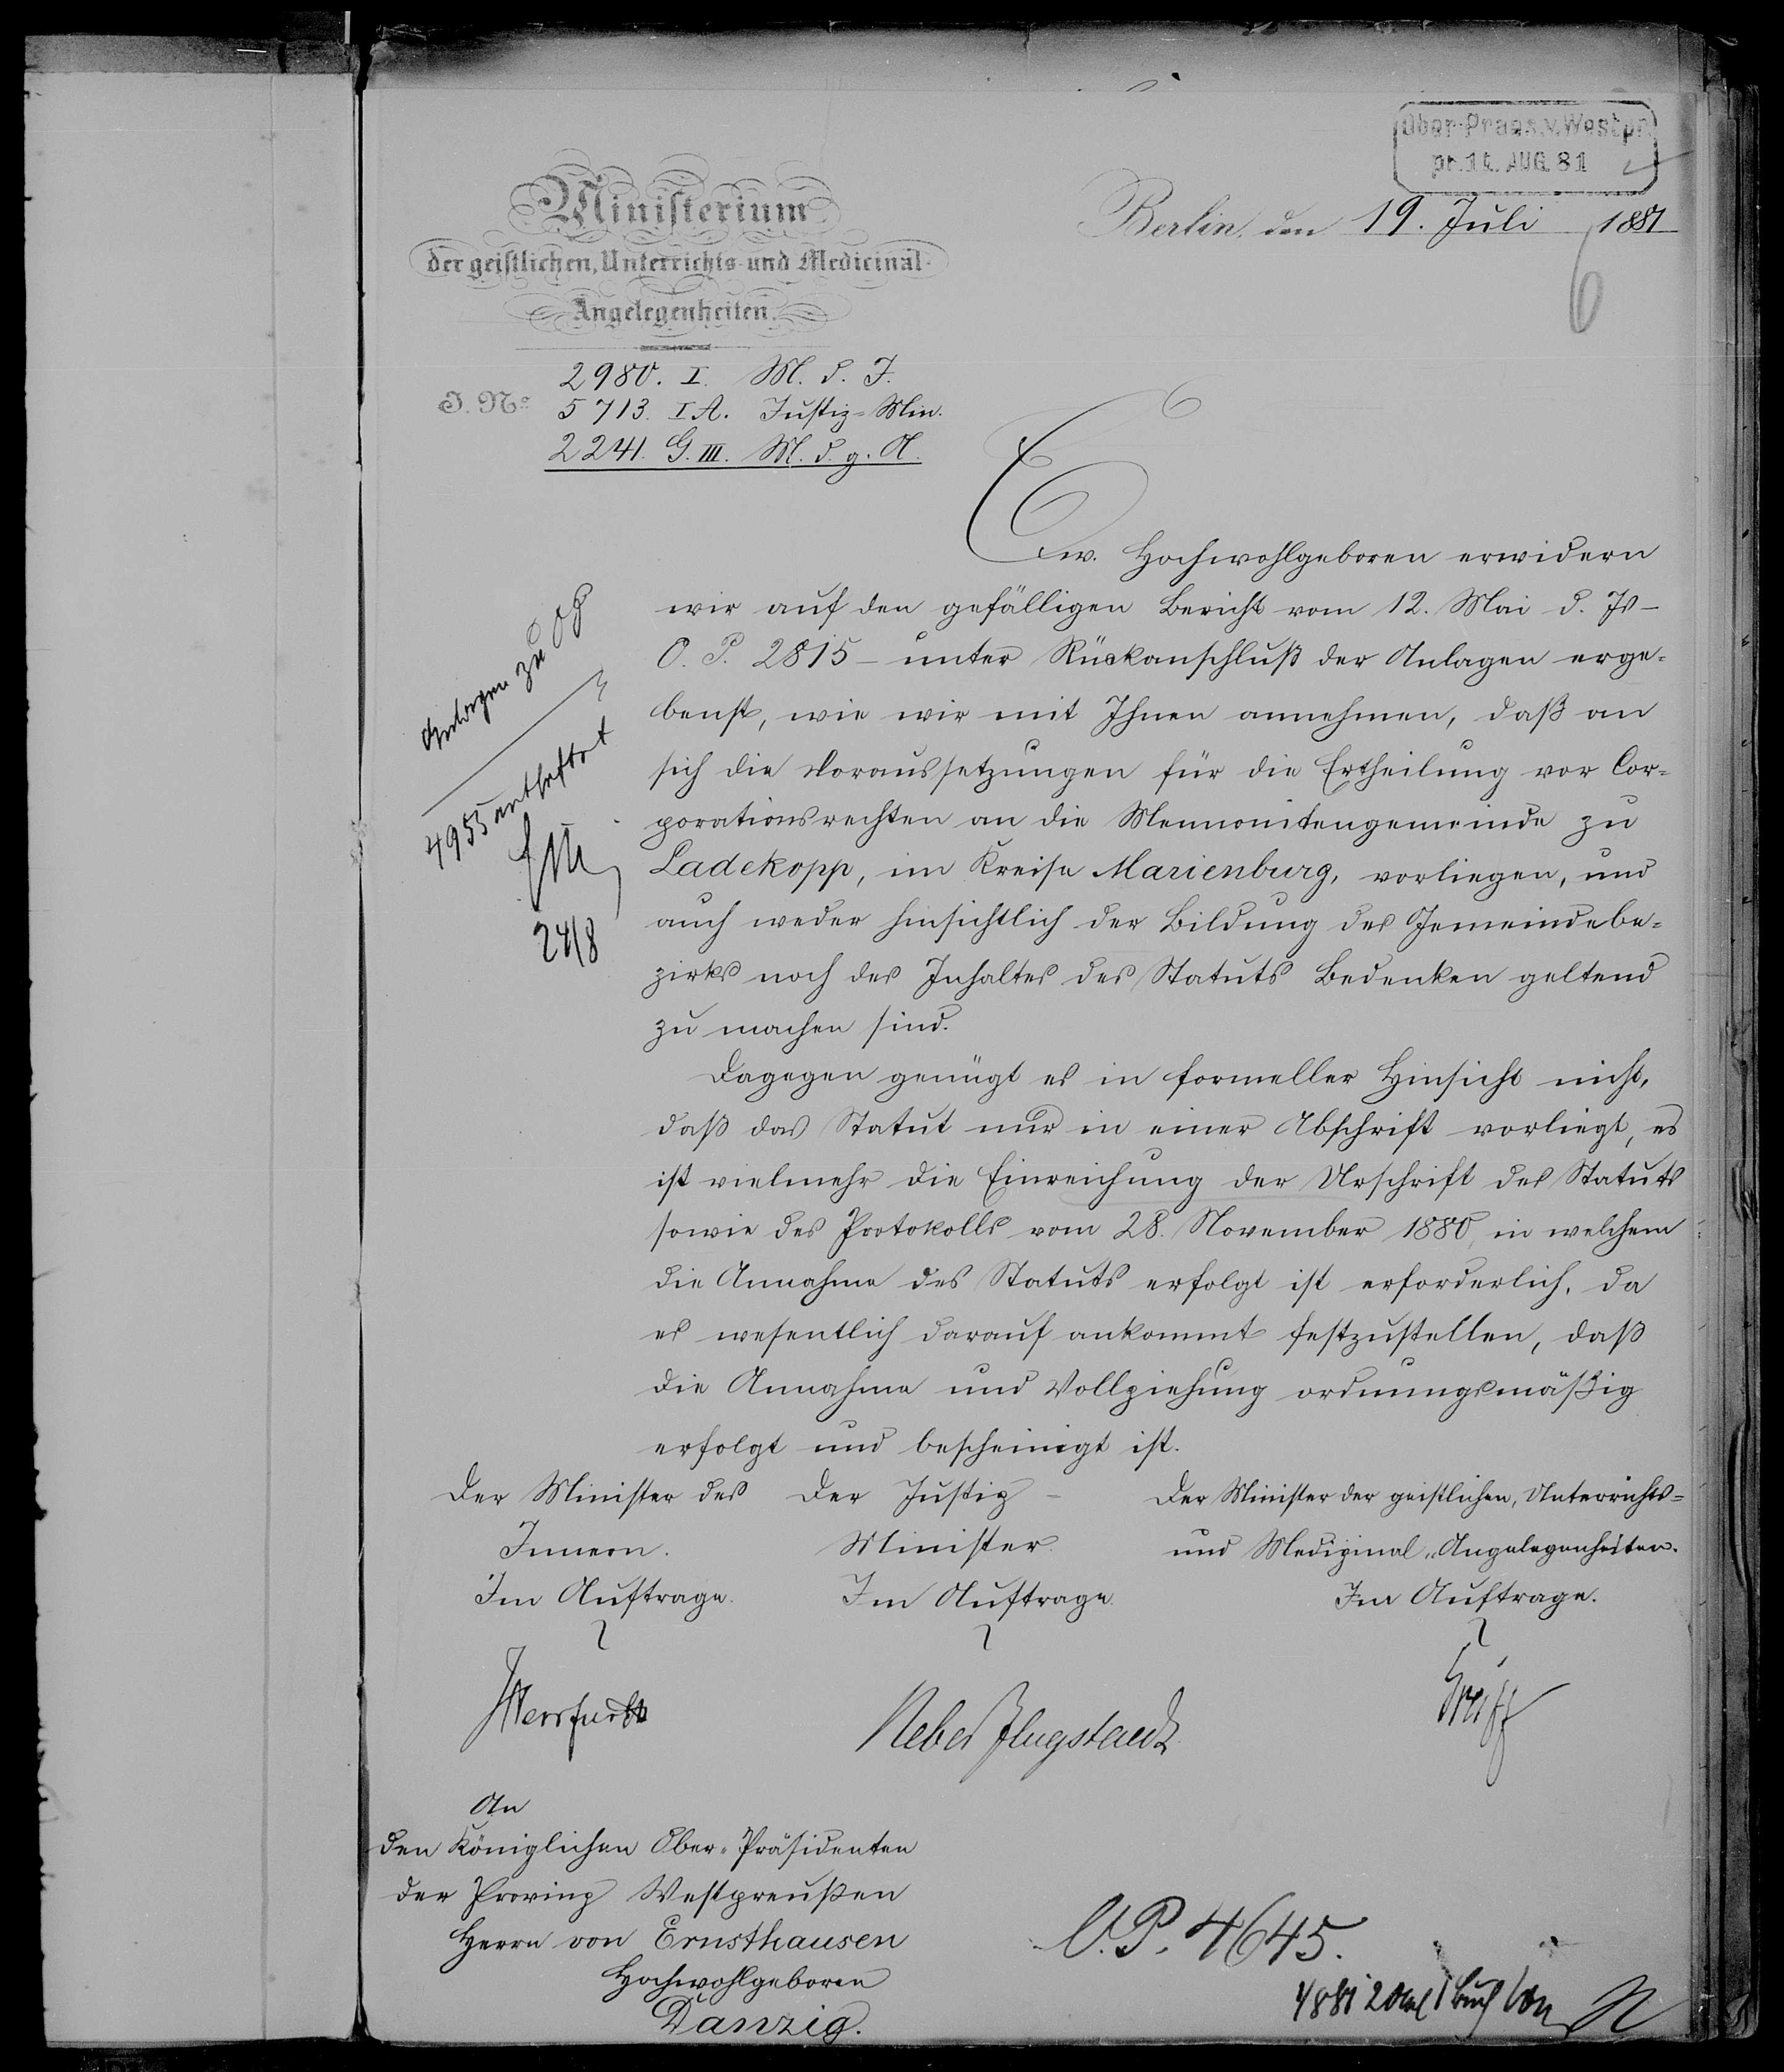 Ober-Praes.v.Westpr.
pr. AUG. 81
Ministerium
der geistlichen, Unterrichts- und Medicinal-
Angelegenheiten.
Berlin, den 19. Juli 1881
6
J. No
2980. I. M. d. J.
5713. I A. Justiz-Min.
2241. G. III. M. d. g. A.
Ew. Hochwohlgeboren erwidern
wir auf den gefälligen Bericht vom 12. Mai d. Js –
O. P. 2815 – unter Rückanschluß der Anlagen erge-
benst, wie wir mit Ihnen annehmen, daß an
sich die Voraussetzungen für die Ertheilung vor Cor-
porationsrechten an die Mennonitengemeinde zu
Ladekopp, im Kreise Marienburg, vorliegen, und
auch weder hinsichtlich der Bildung des Gemeindebe-
zirks noch des Inhaltes des Statuts Bedenken geltend
zu machen sind.
Dagegen genügt es in formeller Hinsicht nicht,
daß das Statut nur in einer Abschrift vorliegt, es
ist vielmehr die Einreichung der Urschrift des Statuts
sowie des Protokolls vom 28. November 1880, in welchem
die Annahme des Statuts erfolgt ist erforderlich, da
es wesentlich darauf ankommt festzustellen, daß
die Annahme und Vollziehung ordnungsmäßig
erfolgt und bescheinigt ist.
Anlagen zu OP
4955 entheftet
24/8
Der Minister des
Innern.
Im Auftrage.
Herrfurth
Der Justiz-
Minister
Im Auftrage.
Nebe Pflugstaedt
Der Minister der geistlichen, Unterrichts-
und Medizinal-Angelegenheiten.
Im Auftrage.
Greiff
An
den Königlichen Ober-Präsidenten
der Provinz Westpreußen
Herrn von Ernsthausen
Hochwohlgeboren
Danzig.
O.P. 4645.